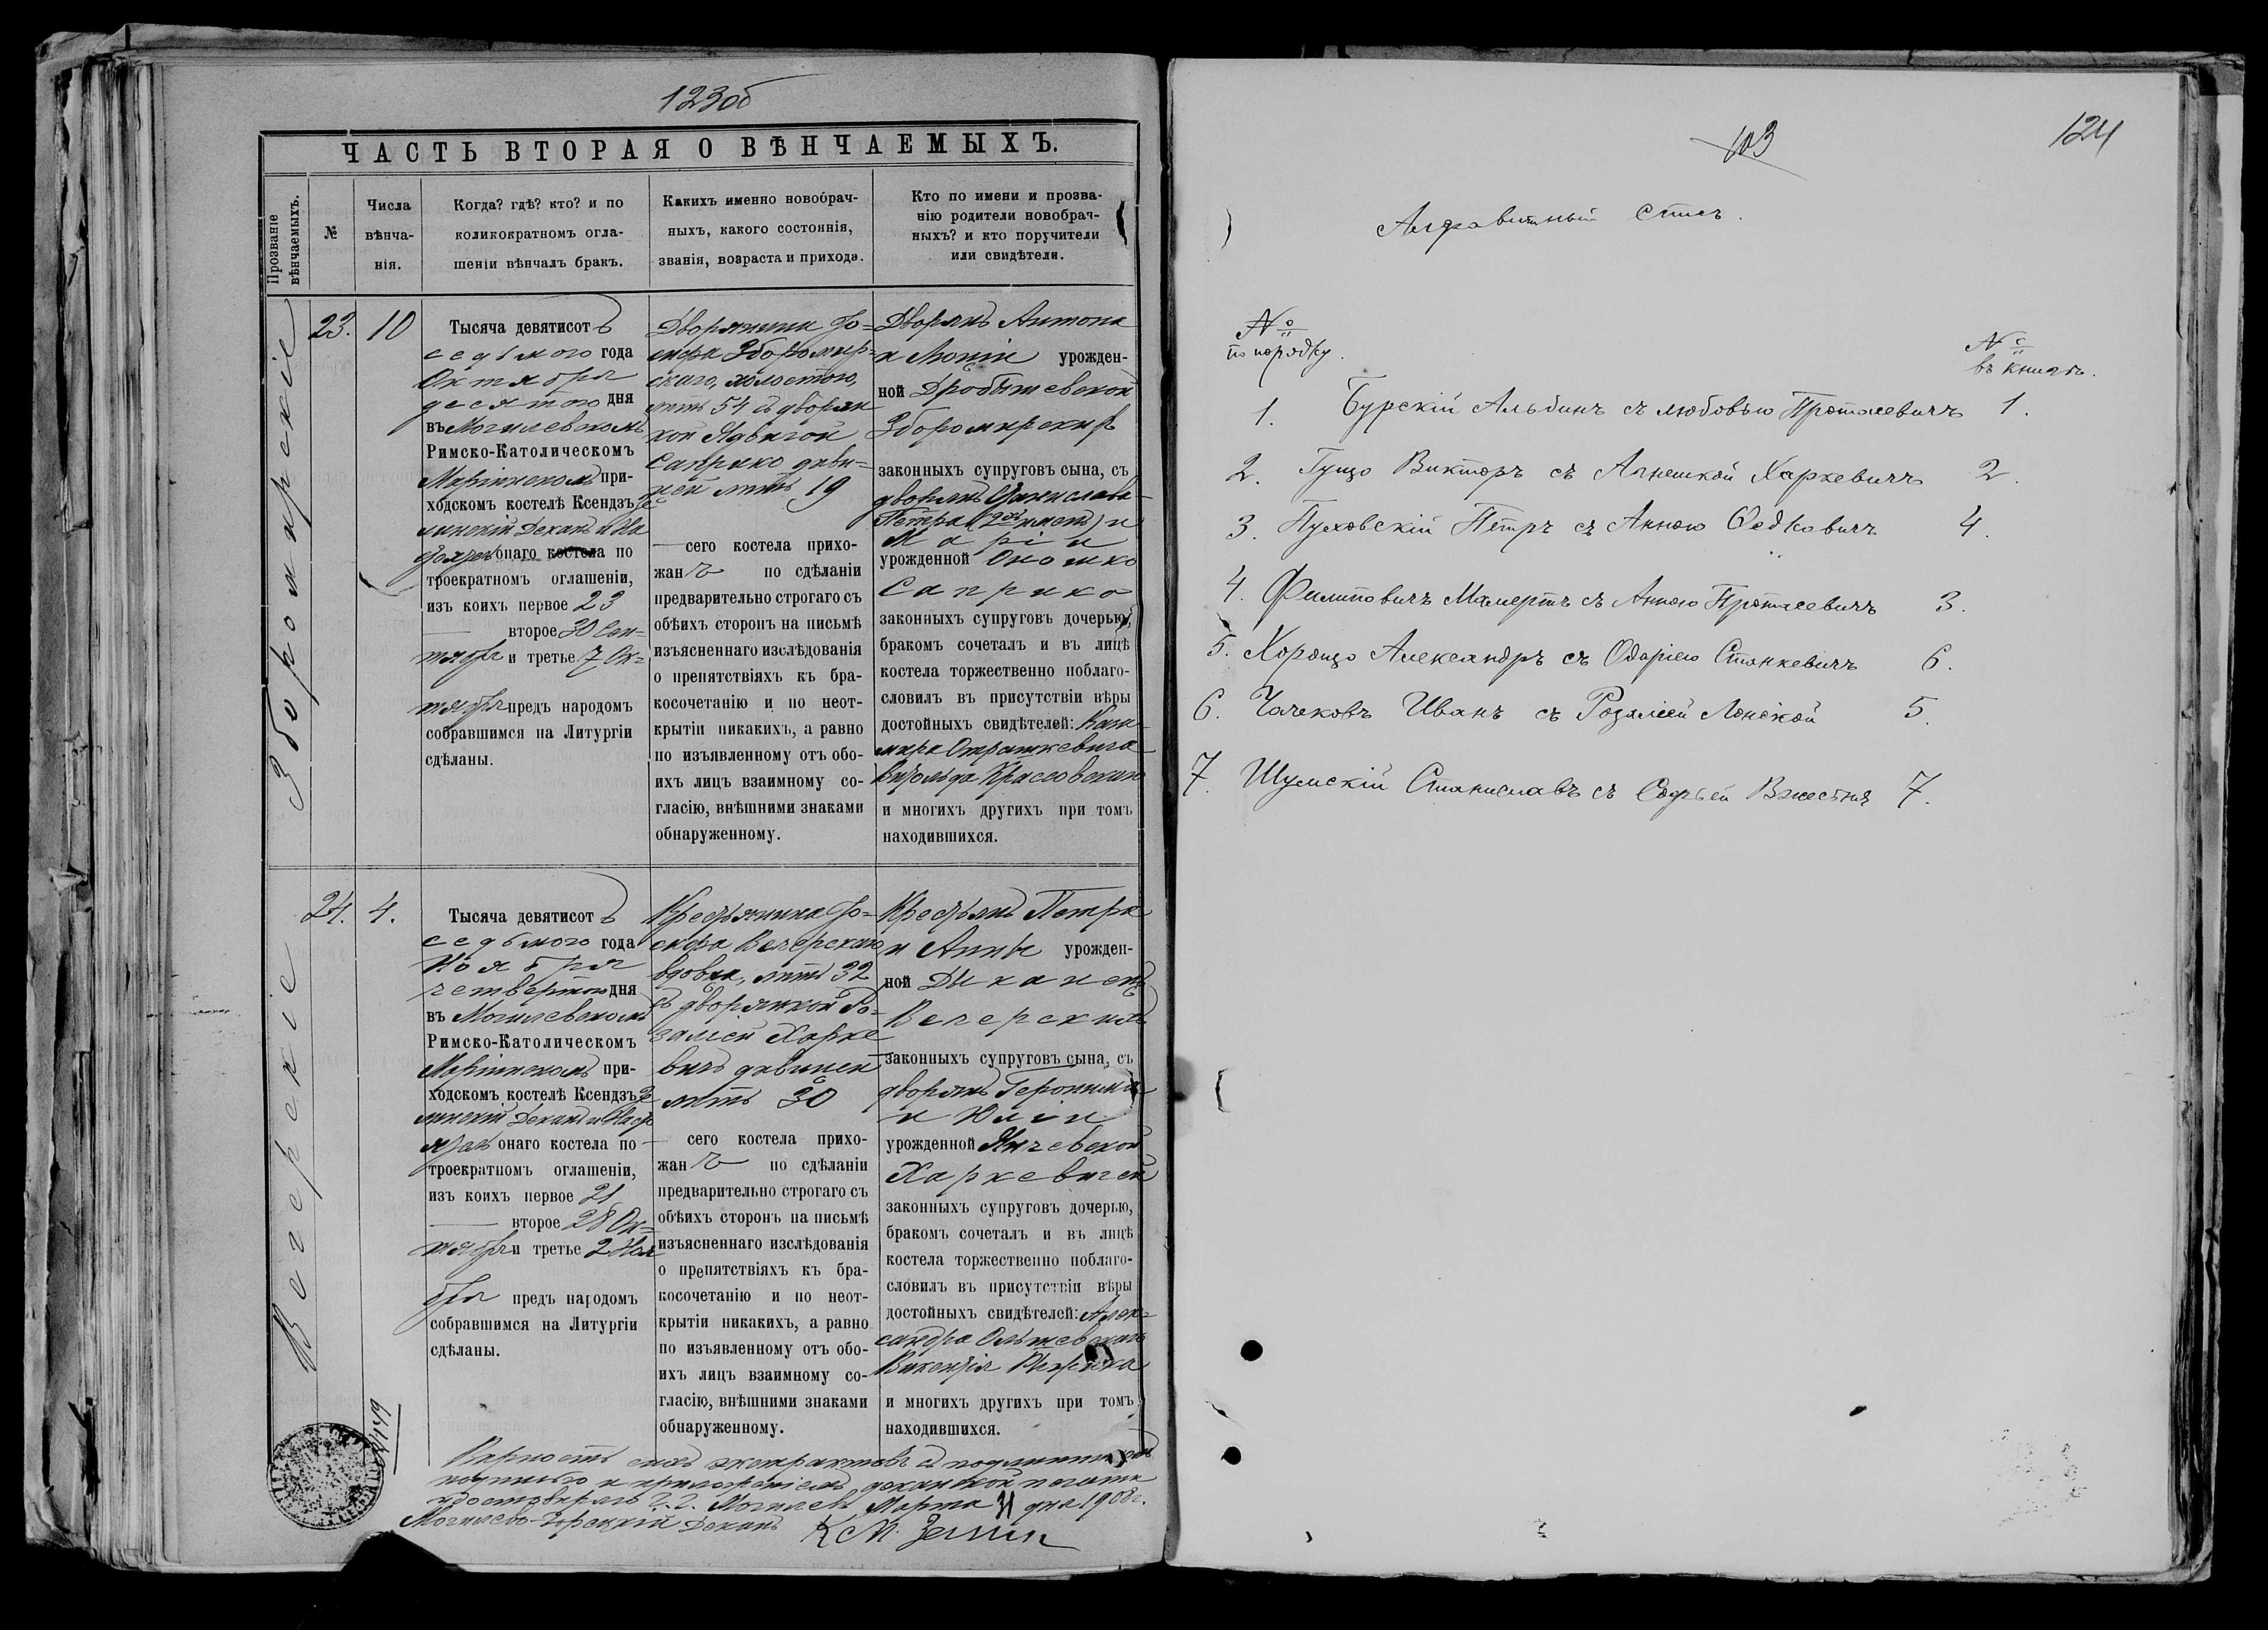 123об
ЧАСТЬ ВТОРАЯ О ВѢНЧАЕМЫХЪ.
Прозваніе вѣнчаемыхъ.
№
Числа
вѣнча-
нія.
Когда? гдѣ? кто? и по
коликократномъ огла-
шеніи вѣнчалъ бракъ.
Какихъ именно новобрач-
ныхъ, какого состоянія,
званія, возраста и прихода.
Кто по имени и прозва-
нію родители новобрач-
ныхъ? и кто поручители
или свидѣтели.
Збромирскіе
23.
10
Тысяча девятисотъ
седьмого года
Октября
десятого дня
въ Могилевскомъ
Римско-Католическомъ
Маріинскомъ при-
ходскомъ костелѣ Ксендзъ Зе
линскій Деканъ и На
онаго костела по
троекратномъ оглашеніи,
изъ коихъ первое 23
второе 30 Сен-
тября и третье 7 Ок-
тября предъ народомъ
собравшимся на Литургіи
сдѣланы.
Дворянина Іо-
сифа Збромир-
скаго, холостого,
лѣтъ 54 съ дворян
кой Ядвигой
Саприко дѣви-
цей лѣтъ 19
сего костела прихо-
жанъ по сдѣланіи
предварительно строгаго съ
обѣихъ сторонъ на письмѣ
изъясненнаго изслѣдованія
о препятствіяхъ къ бра-
косочетанію и по неот-
крытіи никакихъ, а равно
по изъявленному отъ обо-
ихъ лицъ взаимному со-
гласію, внѣшними знаками
обнаруженному.
Дворянъ Антона
и урожден-
ной Дробышевской
Збромирскихъ
законныхъ супруговъ сына, съ
дворянъ Станислава-
Петра (2хъ именъ) и
Маріи
урожденной Оношко
Саприко
законныхъ супруговъ дочерью,
бракомъ сочеталъ и въ лицѣ
костела торжественно поблаго-
словилъ въ присутствіи вѣры
достойныхъ свидѣтелей: Кази-
мира
Витольда Красовскаго
и многихъ другихъ при томъ
находившихся.
Вечерскіе
24.
4.
Тысяча девятисотъ
седьмого года
Ноября
четвертого дня
въ Могилевскомъ
Римско-Католическомъ
Маріинскомъ при-
ходскомъ костелѣ Ксендзъ Зе
линскій Деканъ и Насто
ятель онаго костела по
троекратномъ оглашеніи,
изъ коихъ первое 21
второе 28 Ок-
тября и третье 2 Ноя
бря предъ народомъ
собравшимся на Литургіи
сдѣланы.
Крестьянина Іо-
сифа Вечерскаго
вдовца, лѣтъ 32
съ дворянкой Ро-
заліей Харке
вичъ дѣвицей
лѣтъ 30
сего костела прихо-
жанъ по сдѣланіи
предварительно строгаго съ
обѣихъ сторонъ на письмѣ
изъясненнаго изслѣдованія
о препятствіяхъ къ бра-
косочетанію и по неот-
крытіи никакихъ, а равно
по изъявленному отъ обо-
ихъ лицъ взаимному со-
гласію, внѣшними знаками
обнаруженному.
Крестьянъ Петра
и Анны урожден-
ной
Вечерскихъ
законныхъ супруговъ сына, съ
дворянъ Геронима
и Юліи
урожденной Янчевской
Харкевичей
законныхъ супруговъ дочерью,
бракомъ сочеталъ и въ лицѣ
костела торжественно поблаго-
словилъ въ присутствіи вѣры
достойныхъ свидѣтелей: Алек-
сандра Ольшевскаго
Викентія
и многихъ другихъ при томъ
находившихся.
Вѣрность сихъ экстрактовъ съ подлинникомъ
подписью и приложеніемъ деканской печати
удостовѣряю г. Могилевъ Марта дня 1908 г.
Могилево-Горецкій Деканъ
103
124
Алфавитный списъ.
№
по порядку.
№
въ книгѣ.
1. Бурскій Альбинъ съ Любовью Протасевичъ 1.
2. Гуцо Викторъ съ Агнешкой Харкевичъ 2.
3. Пуховскій Петръ съ Анною Федковичъ 4.
4. Филиповичъ Мамертъ съ Анною Протасевичъ 3.
5. Хорощо Александръ съ Одаріею Станкевичъ 6.
6. Чачковъ Иванъ съ Розаліей Лонской 5.
7. Шумскій Станиславъ съ Софьей 7.